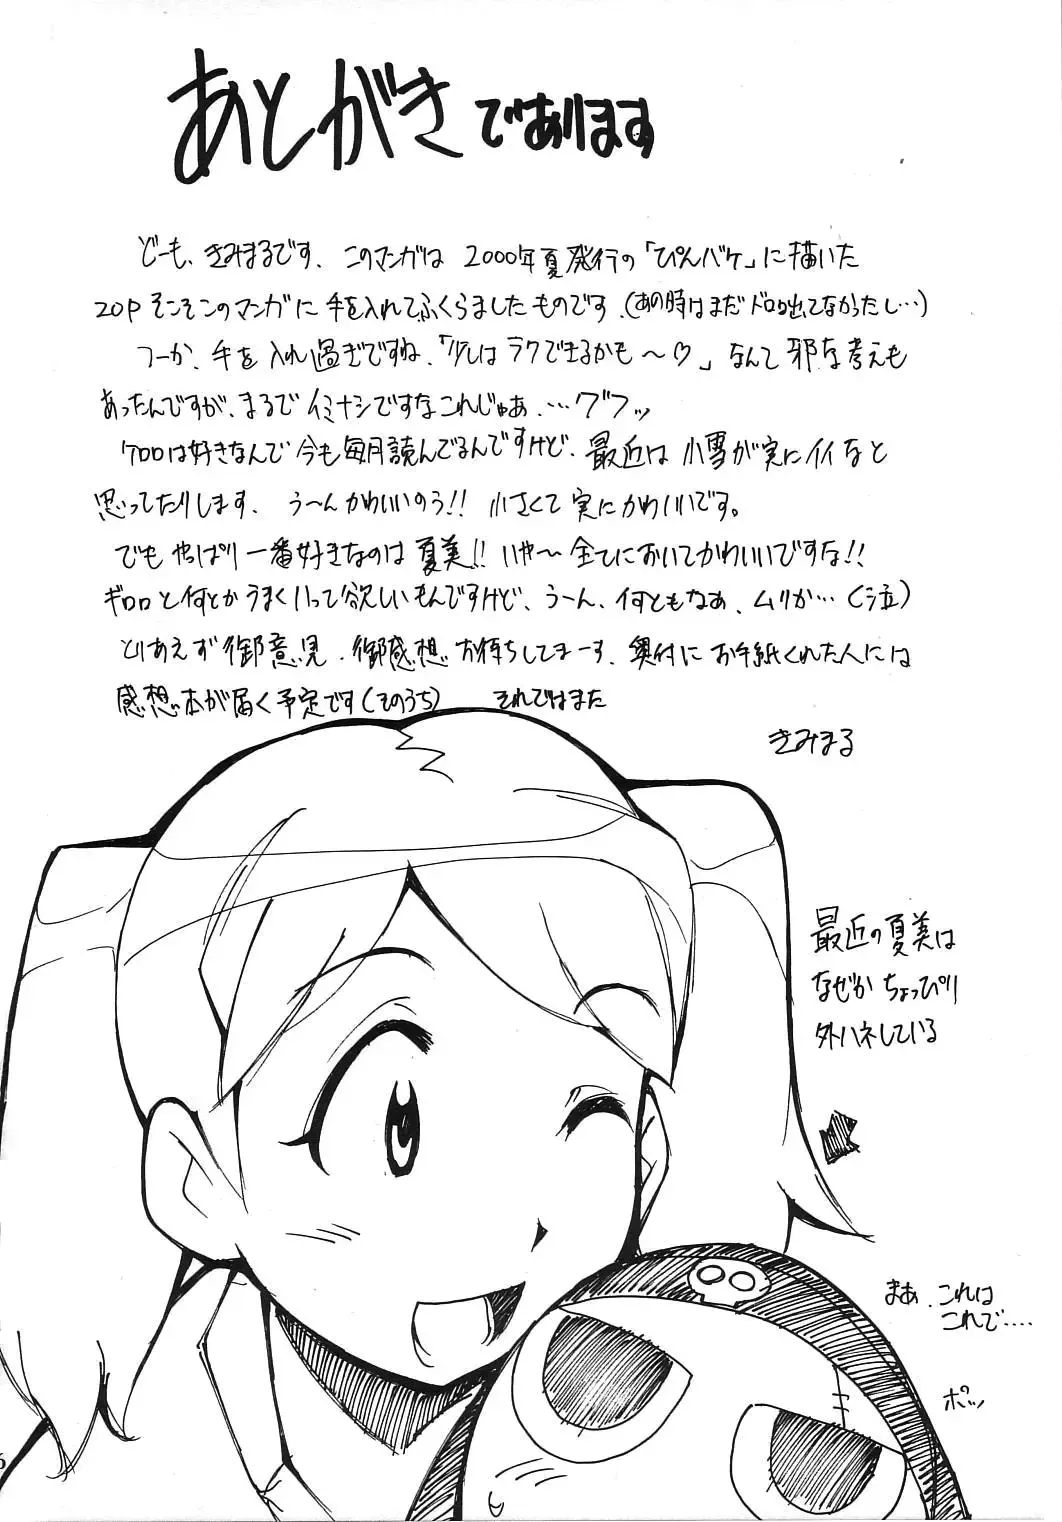 あとがきであります
どーも、きみまるです、このマンガは2000年夏発行の「ぴんバケ」に描いた
20Pそこそこのマンガに手を入れてふくらましたものです、(あの時はまだドロロ出てなかったし…)
つーか、手を入れ過ぎですね、「少しはラクできるかも～♡」なんて邪な考えも
あったんですが、まるでイミナシですなこれじゃあ、…グフッ
ケロロは好きなんで今も毎月読んでるんですけど、最近は小雪が実にイイなと
思ってたりします、う～んかわいいのう!!小さくて実にかわいいです。
でもやっぱり一番好きなのは夏美!!いや～全てにおいてかわいいですな!!
ギロロと何とかうまくいって欲しいもんですけど、う～ん、何ともなあ、ムリか…(泣)
とりあえず御意見、御感想お待ちしてまーす、奥付にお手紙くれた人には
感想本が届く予定です(そのうち)　それではまた
きみまる
最近の夏美は
なぜかちょっぴり
外ハネしている
まぁ、これは
これで‥‥
ポッ
6